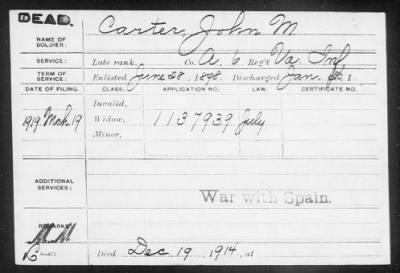 DEAD.
NAME OF SOLDIER: Carter, John M.
SERVICE: Late rank, Co. A, 6 Reg't Va. Inf.
TERM OF SERVICE: Enlisted June 28, 1898. Discharged Jan. 1
DATE OF FILING. CLASS. APPLICATION NO. LAW. CERTIFICATE NO.
Invalid,
1919 Mch. 19 Widow, 1137939 July
Minor,
ADDITIONAL SERVICES:
War with Spain.
REMARKS
Died Dec 19, 1914, at